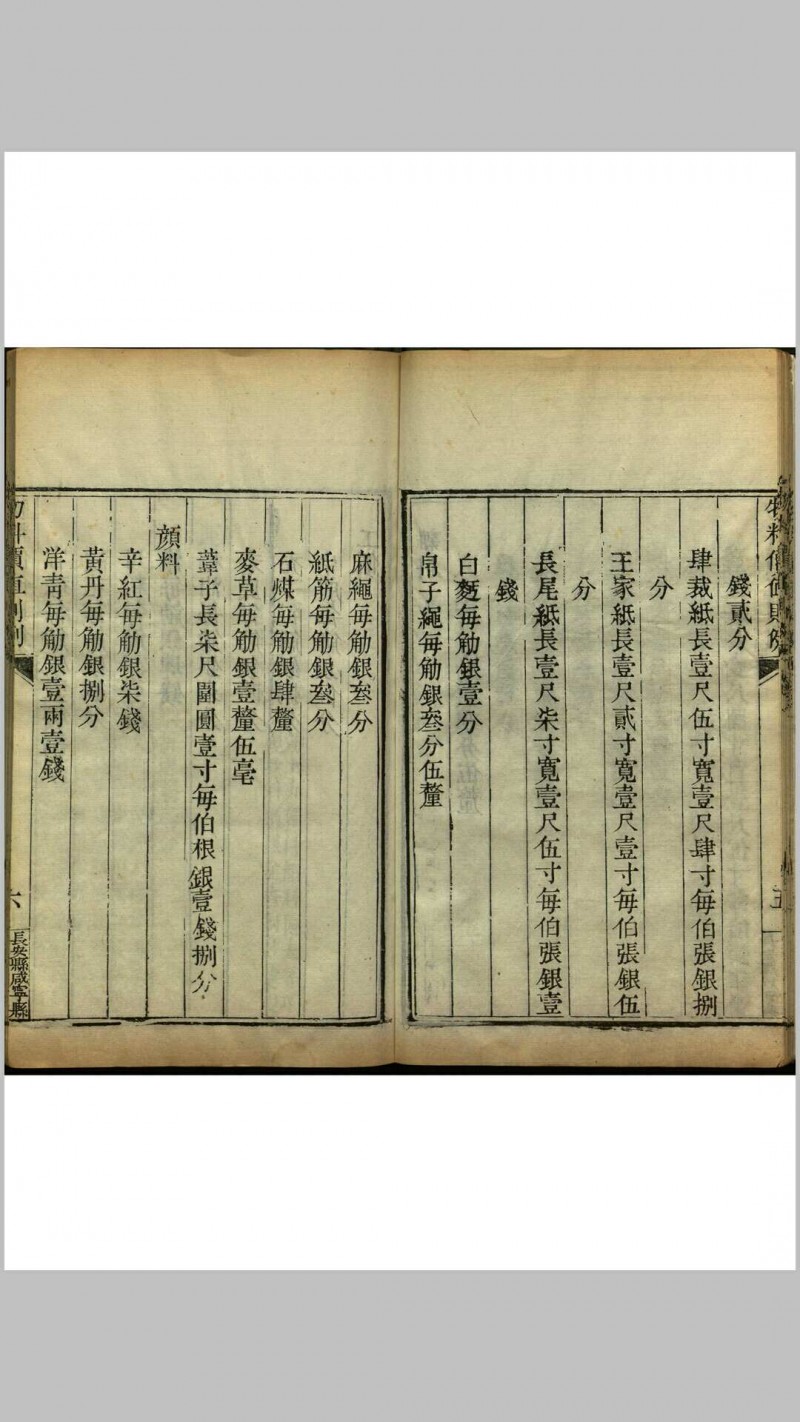 物料價值則例
五
錢貳分
肆裁紙長壹尺伍寸寬壹尺肆寸每伯張銀捌
分
王家紙長壹尺貳寸寬壹尺壹寸每伯張銀伍
分
長尾紙長壹尺柒寸寬壹尺伍寸每伯張銀壹
錢
白麵每觔銀壹分
帛子繩每觔銀叁分伍釐
麻繩每觔銀叁分
紙筋每觔銀叁分
石煤每觔銀肆釐
麥草每觔銀壹釐伍毫
葦子長柒尺圍圓壹寸每伯根銀壹錢捌分
顏料
辛紅每觔銀柒錢
黃丹每觔銀捌分
洋青每觔銀壹兩壹錢
物料價直則例
六
長安縣咸寧縣